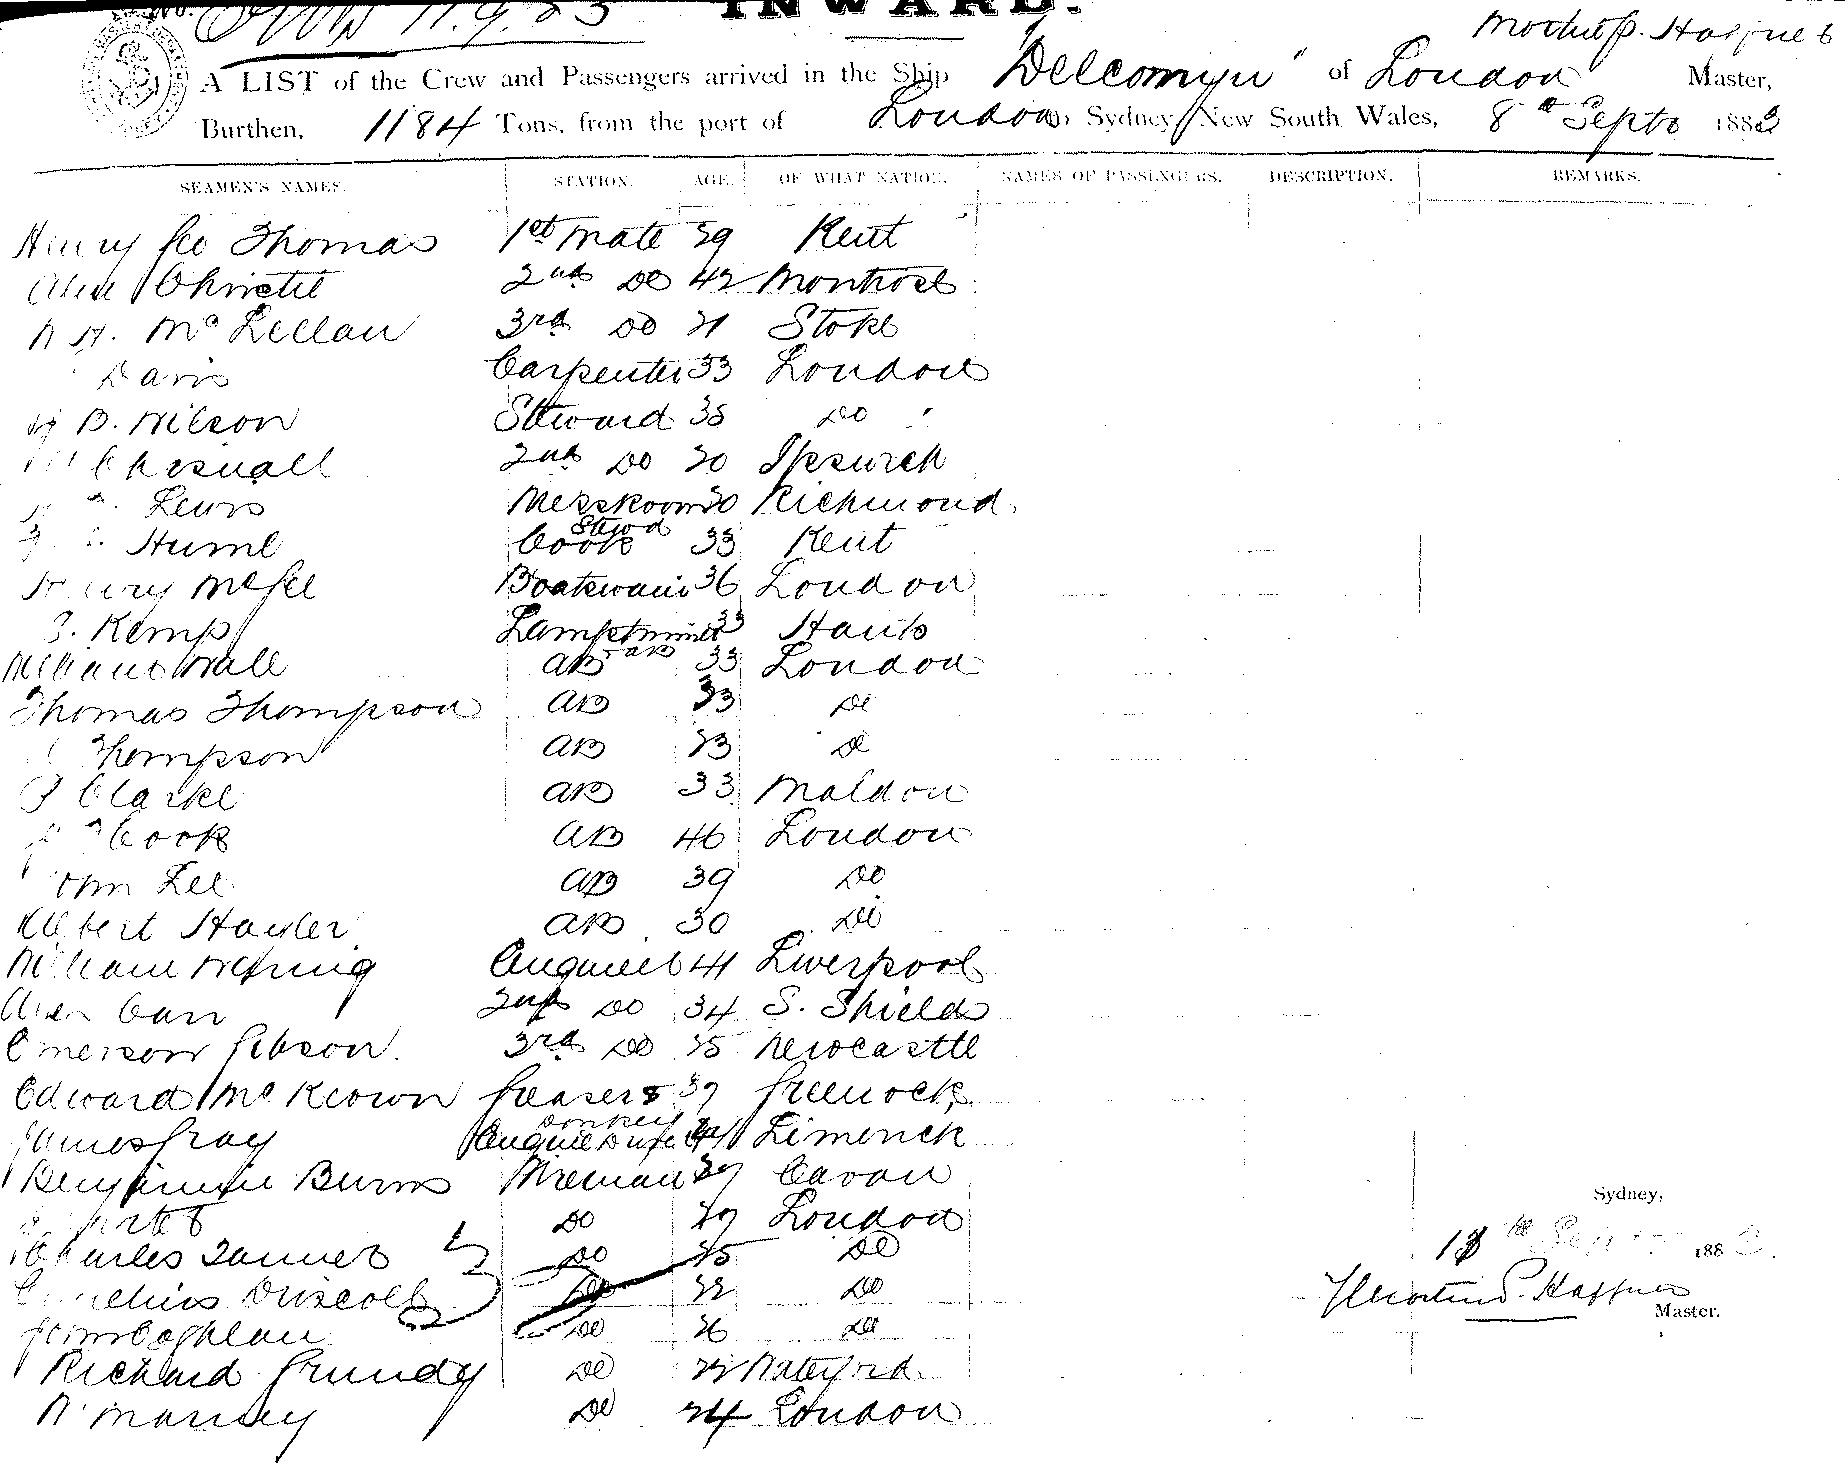 INWARD.
11.9.83
A LIST of the Crew and Passengers arrived in the Ship "Delcomyn" of London Master,
Burthen, 1184 Tons, from the port of London to Sydney, New South Wales, 8th Septr 1883
SEAMEN'S NAMES. STATION. AGE. OF WHAT NATION. NAMES OF PASSENGERS. DESCRIPTION. REMARKS.
Henry Geo Thomas 1st Mate 39 Kent
Alex Christie 2nd Do 42 Montrose
McLellan 3rd Do 21 Stoke
Davis Carpenter 33 London
B. Wilson Steward 35 Do
Chisnall 2nd Do 20 Ipswich
Lewis Messroom Stewd 20 Richmond
Hume Cook 33 Kent
Henry McGee Boatswain 36 London
Kemp Lamptrimer AB 33 Hants
William Wall AB 33 London
Thomas Thompson AB 33 Do
Thompson AB 23 Do
Clarke AB 33 Maldon
Cook AB 46 London
John Lee AB 39 Do
Albert Hayler AB 30 Do
William Engineer 41 Liverpool
Carr 2nd Do 34 S. Shields
Emerson Gibson. 3rd Do 25 Newcastle
Edward McKeown Greaser & 39 Greenock
James Gray Donkey Limerick
Benjamin Burns Fireman 29 Cavan
Do 29 London
Charles Tanner Do 25 Do
Cornelius Driscoll Do 22 Do
John Coghlan Do 26 Do
Richard Grundy Do 22 Waterford
Do 24 London
Sydney,
Sept 1883.
Haffner
Master.